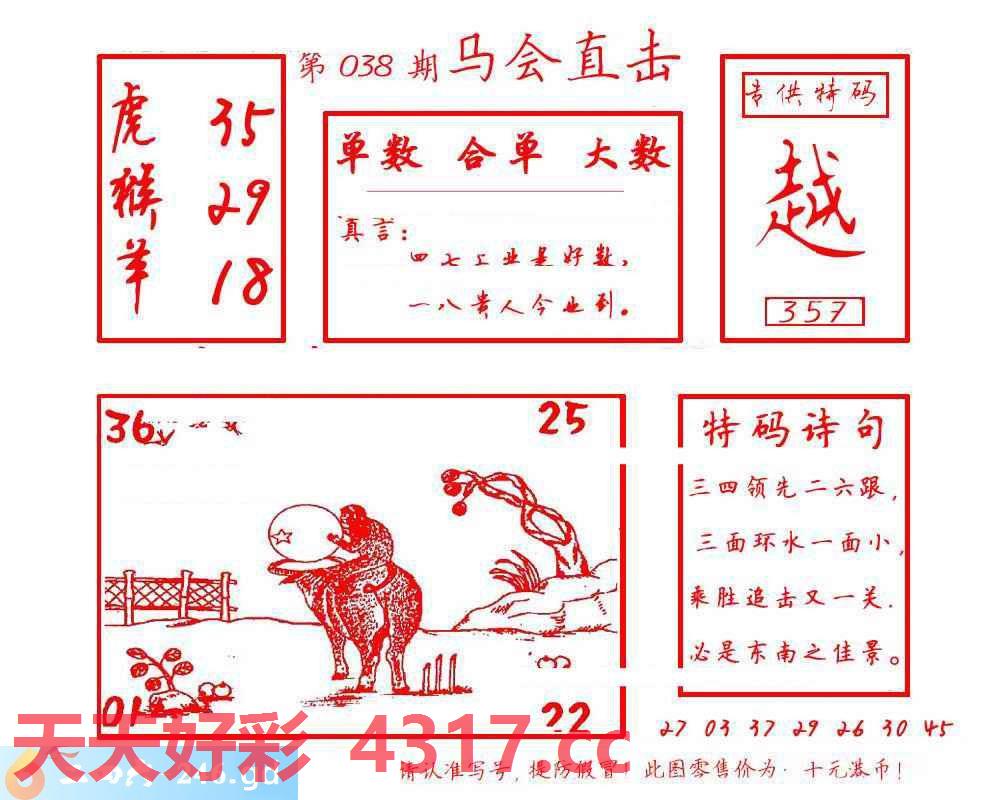 第 038 期 马会直击
虎 35
猴 29
羊 18
单数 合单 大数
真言：
四七工业是好数，
一八贵人今业到。
专供特码
越
357
36
25
01
22
特码诗句
三四领先二六跟，
三面环水一面小，
乘胜追击又一关.
必是东南之佳景。
27 03 37 29 26 30 45
天天好彩 4317.cc
246.gd
请认准写号，提防假冒！此图零售价为·十元港币！